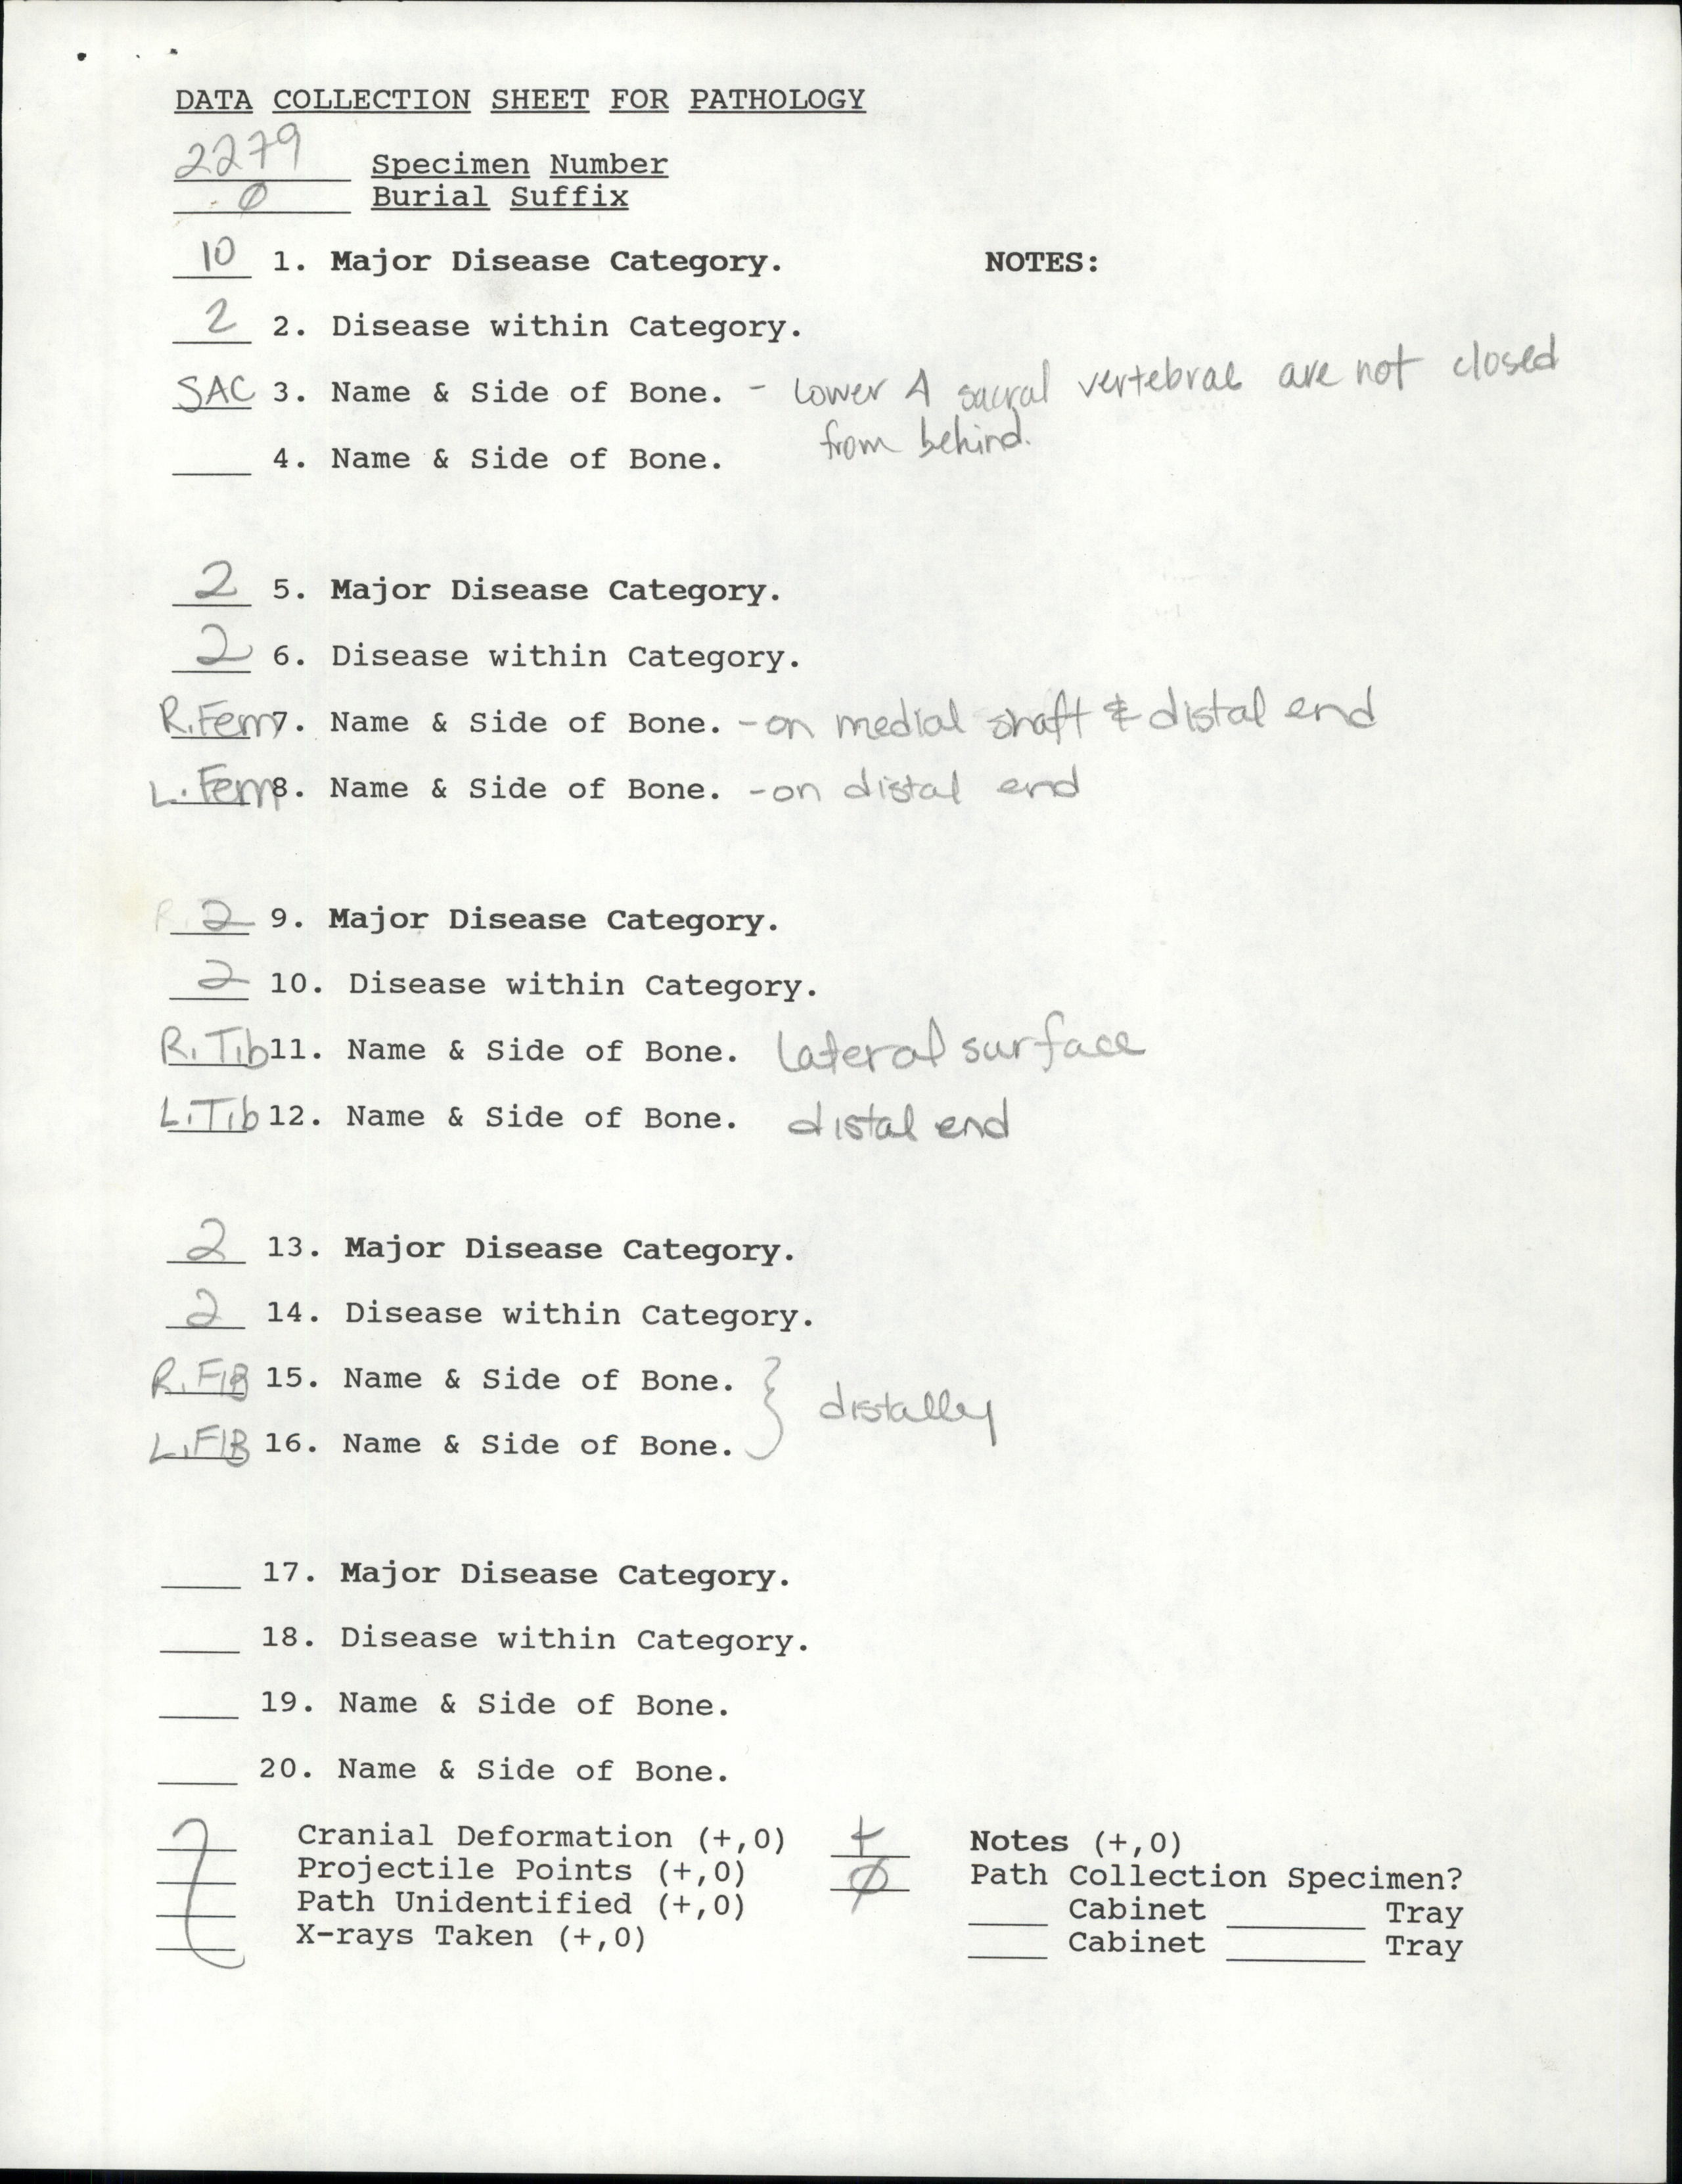 DATA COLLECTION SHEET FOR PATHOLOGY
2279 Specimen Number
Ø Burial Suffix
10 1. Major Disease Category. NOTES:
2 2. Disease within Category.
SAC 3. Name & Side of Bone. - Lower 4 sacral vertebrae are not closed
from behind.
4. Name & Side of Bone.
2 5. Major Disease Category.
2 6. Disease within Category.
R.Fem 7. Name & Side of Bone. - on medial shaft & distal end
L.Fem 8. Name & Side of Bone. - on distal end
2 9. Major Disease Category.
2 10. Disease within Category.
R.Tib 11. Name & Side of Bone. Lateral surface
L.Tib 12. Name & Side of Bone. distal end
2 13. Major Disease Category.
2 14. Disease within Category.
R.FIB 15. Name & Side of Bone. } distally
L.FIB 16. Name & Side of Bone.
17. Major Disease Category.
18. Disease within Category.
19. Name & Side of Bone.
20. Name & Side of Bone.
Cranial Deformation (+,0) + Notes (+,0)
Projectile Points (+,0) Ø Path Collection Specimen?
Path Unidentified (+,0) Cabinet Tray
X-rays Taken (+,0) Cabinet Tray